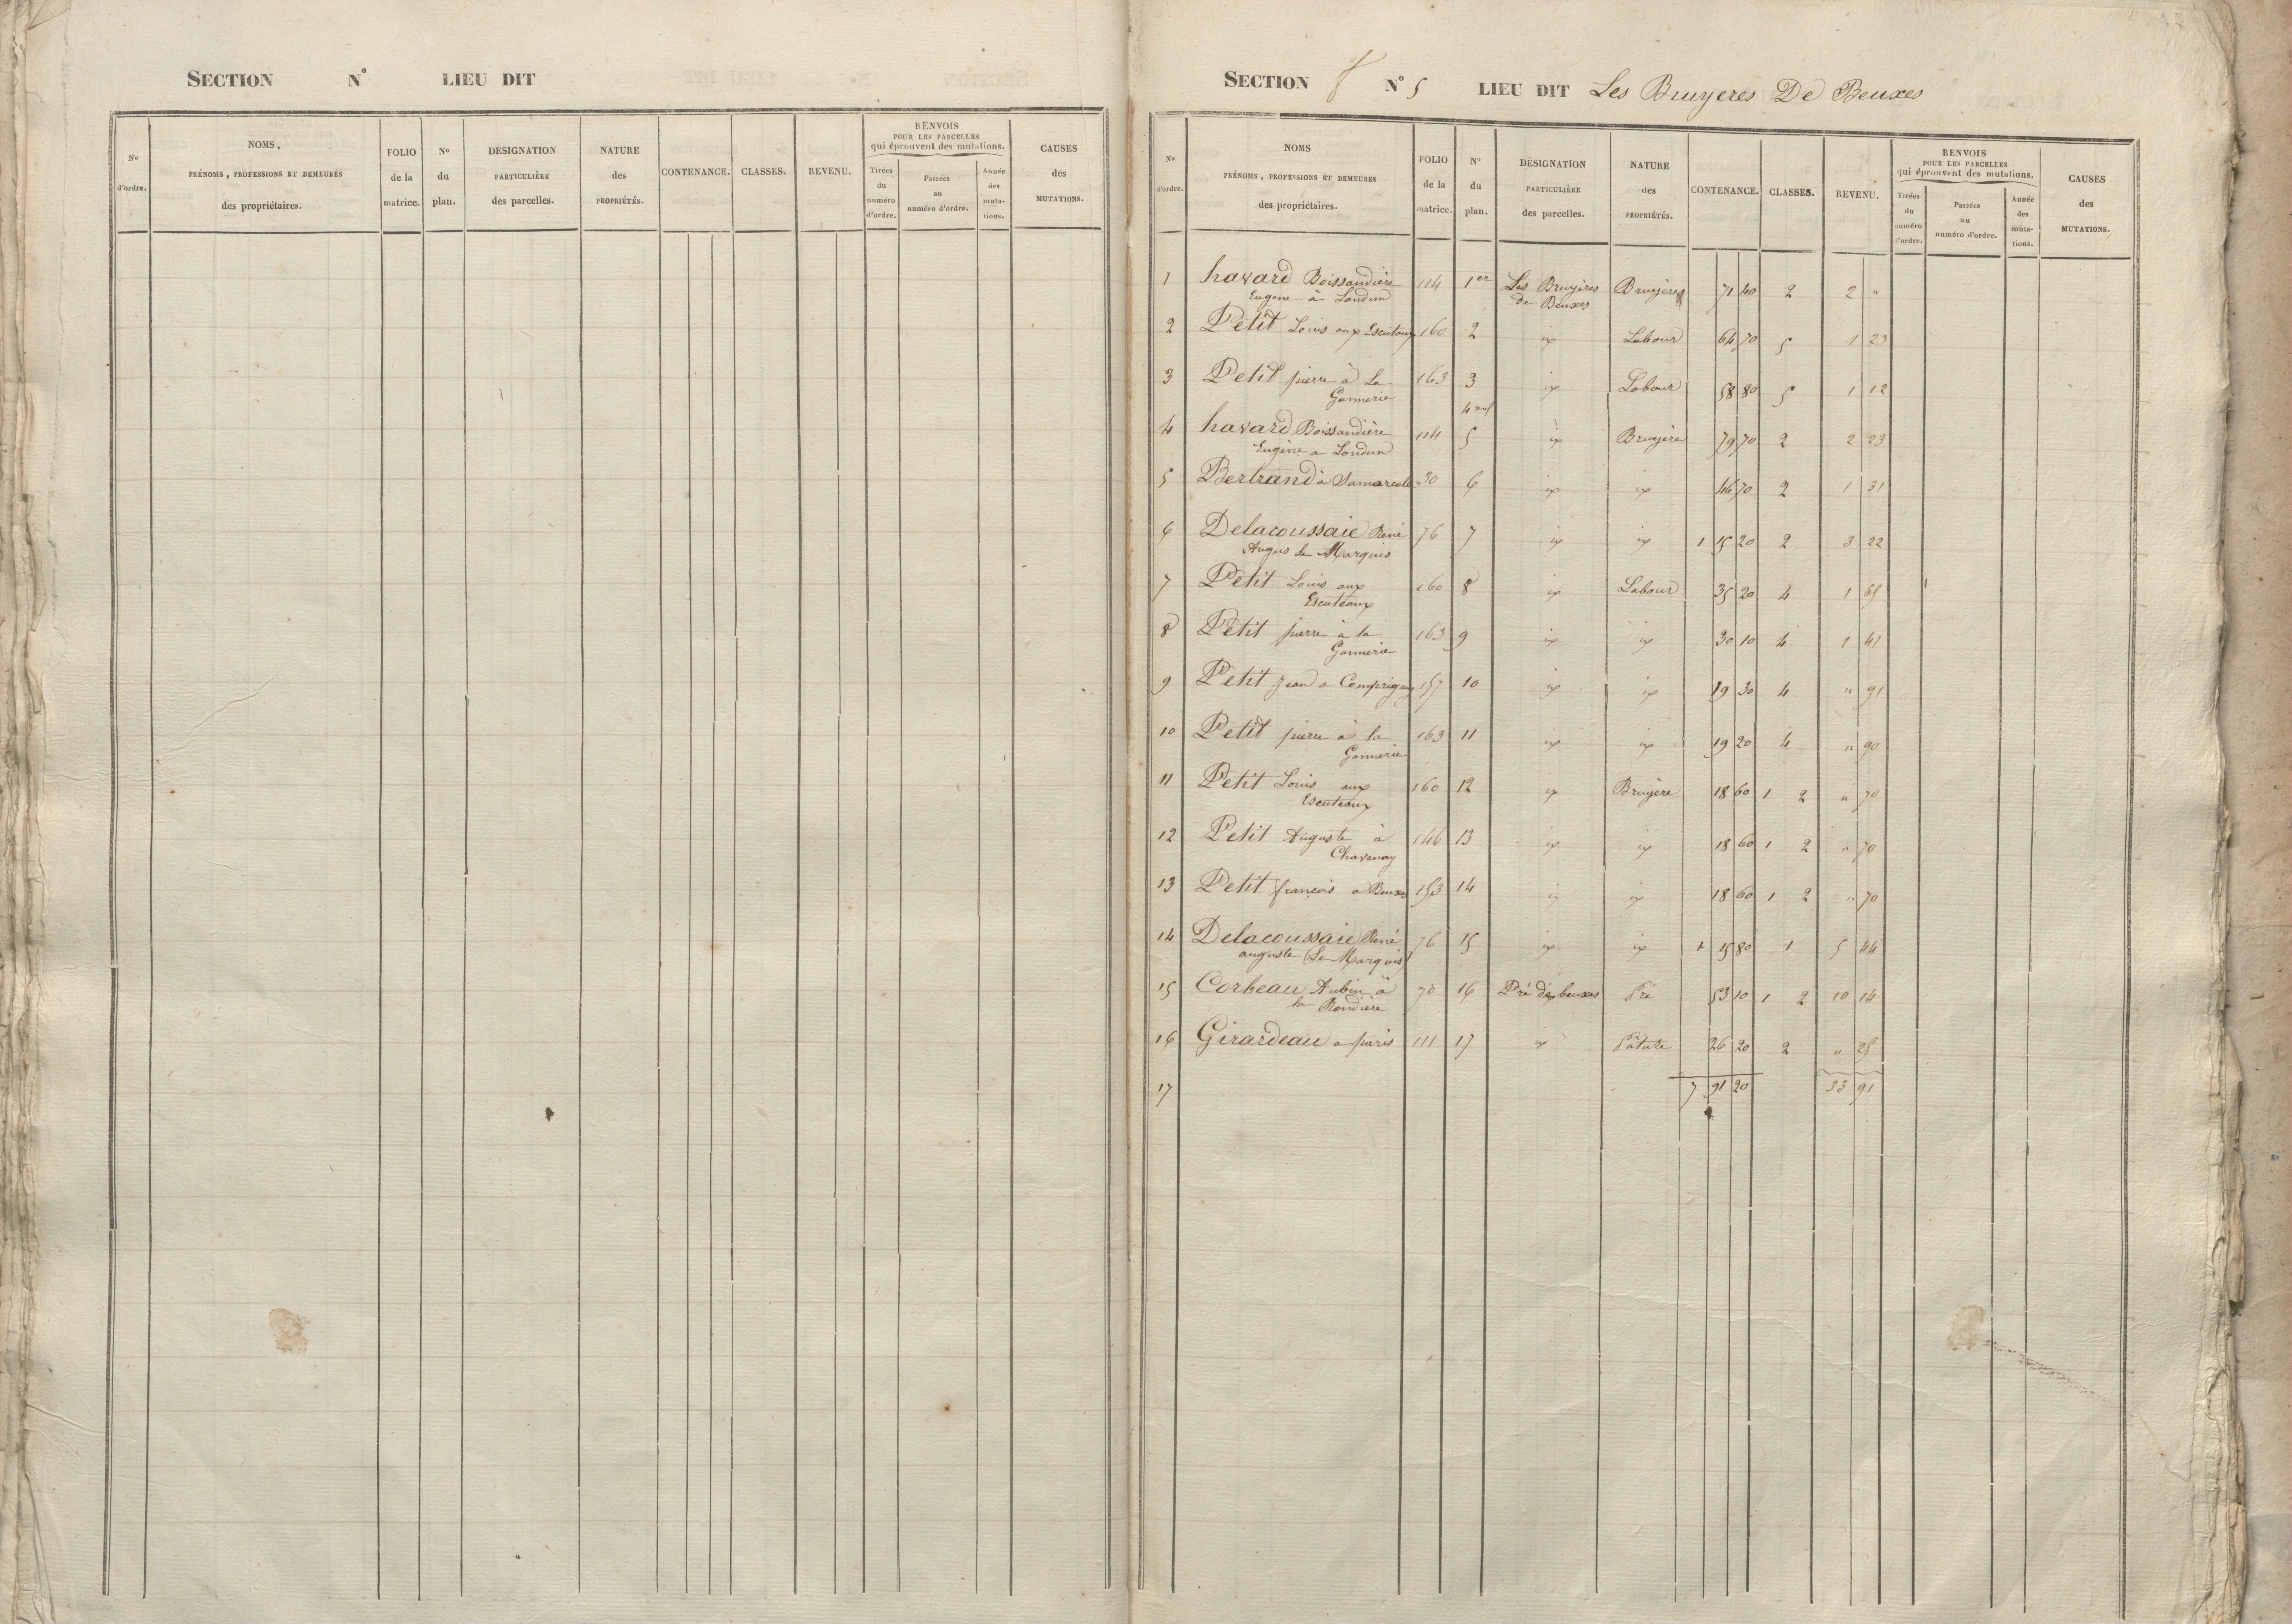 SECTION N° LIEU DIT
N° d'ordre. NOMS, PRÉNOMS, PROFESSIONS ET DEMEURES des propriétaires. FOLIO de la matrice. N° du plan. DÉSIGNATION PARTICULIÈRE des parcelles. NATURE des PROPRIÉTÉS. CONTENANCE. CLASSES. REVENU. RENVOIS POUR LES PARCELLES qui éprouvent des mutations. Tirées du numéro d'ordre. Passées au numéro d'ordre. Année des mutations. CAUSES des MUTATIONS.
SECTION N° 5 LIEU DIT Les Bruyeres De Beuxes
N° d'ordre. NOMS PRÉNOMS, PROFESSIONS ET DEMEURES des propriétaires. FOLIO de la matrice. N° du plan. DÉSIGNATION PARTICULIÈRE des parcelles. NATURE des PROPRIÉTÉS. CONTENANCE. CLASSES. REVENU. RENVOIS POUR LES PARCELLES qui éprouvent des mutations. Tirées du numéro d'ordre. Passées au numéro d'ordre. Année des mutations. CAUSES des MUTATIONS.
1 havard Boissandière 114 1er Les Bruyères Bruyères 71 40 2 2 "
Eugene à Loudun de Beuxes
2 Petit Louis aux Escuteaux 160 2 ix Labour 64 70 5 1 23
3 Petit pierre à La 163 3 ix Labour 58 80 5 1 12
Gannerie
4 nul
4 havard Boissandière 114 5 ix Bruyère 79 70 2 2 23
Eugène a Loudun
5 Bertrand à Samarcole 30 6 ix ix 46 70 2 1 31
6 Delacoussaie René 76 7 ix ix 1 15 20 2 3 22
Augus Le Marquis
7 Petit Louis aux 160 8 ix Labour 35 20 4 1 65
Escuteaux
8 Petit pierre à la 163 9 ix ix 30 10 4 1 41
Gannerie
9 Petit Jean a Comprigny 157 10 ix ix 19 30 4 " 91
10 Petit pierre à la 163 11 ix ix 19 20 4 " 90
Gannerie
11 Petit Louis aux 160 12 ix Bruyère 18 60 1 2 " 70
Escuteaux
12 Petit Auguste à 146 13 ix ix 18 60 1 2 " 70
Chavenay
13 Petit françois a Beuxes 153 14 ix ix 18 60 1 2 " 70
14 Delacoussaie René 76 15 ix ix 1 15 80 1 5 44
auguste Le Marquis
15 Corbeau Aubin à 70 16 Pré de beuxes Pré 53 10 1 2 10 14
la Rondière
16 Girardeau a paris 111 17 ix Pâture 26 20 2 " 25
17 7 91 20 33 91